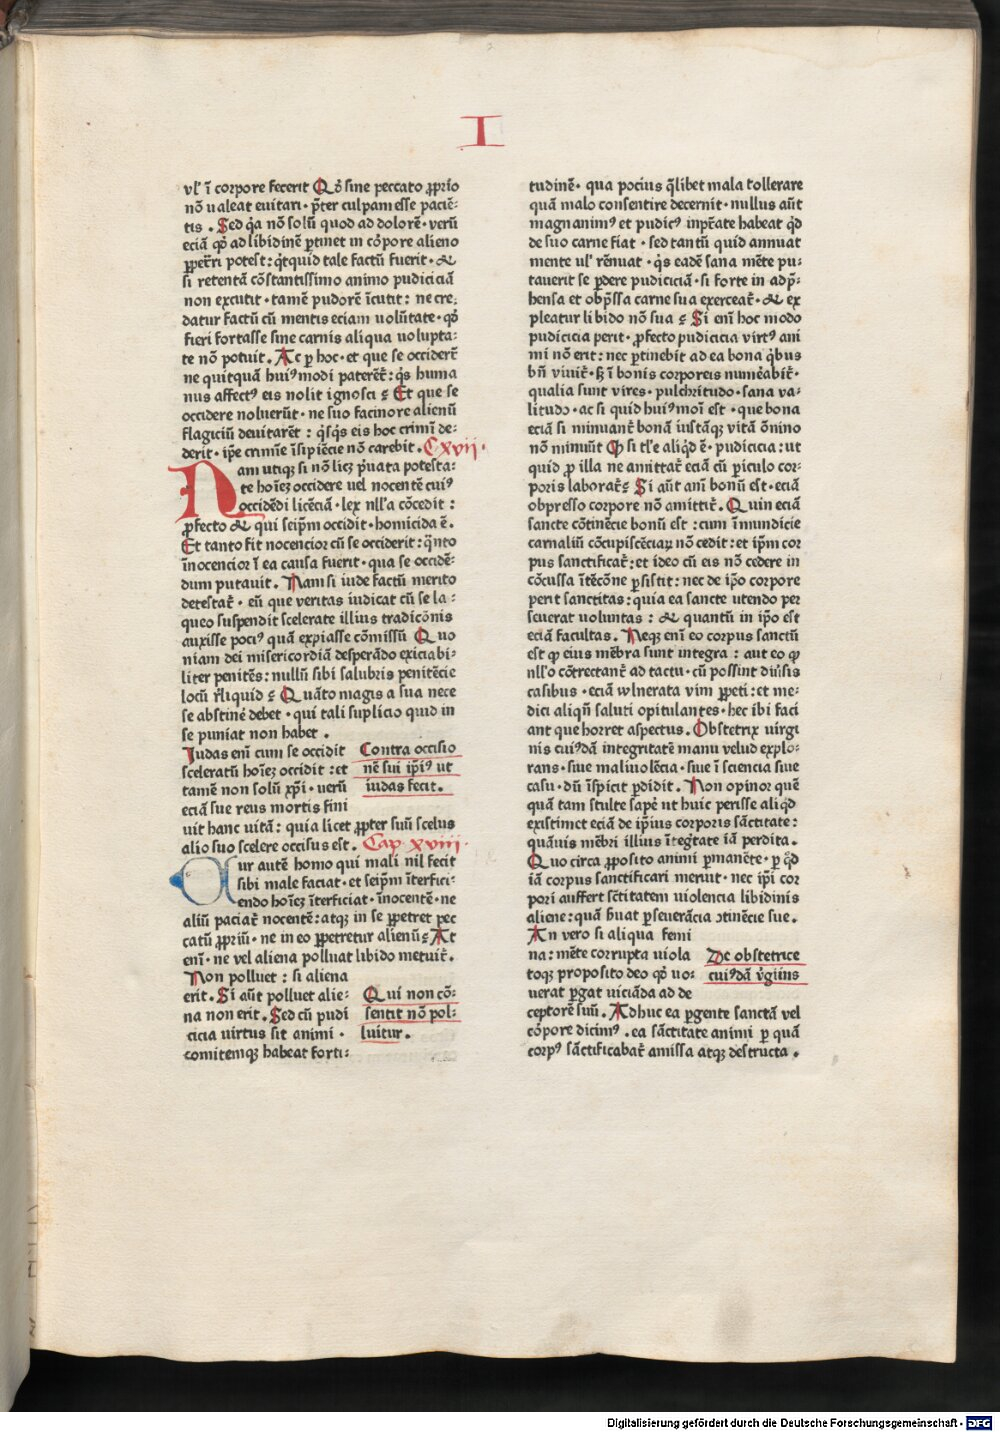 I
vl' ī corpore fecerit Qō sine peccato ꝓprio
nō ualeat euitari · p̄ter culpam esse paciē-
tis . Sed q̇a nō solū quod ad dolorē · verū
eciā qō ad libidinē ꝑtinet in cōpore alieno
ꝑpet̄ri potest : q̇tquid tale factū fuerit · &
si retentā cōstantissimo animo pudiciciā
non excutit · tamē pudorē īcutit : ne cre-
datur factū cū mentis eciam uolūtate · qō
fieri fortasse sine carnis aliqua uolupta-
te nō potuit . Ac ꝑ hoc · et que se occider̄t
ne quitquā huiꝰmodi pateren̄t : q̇s huma
nus affectꝰ eis nolit ignosci ? Et que se
occidere noluerūt · ne suo facinore alienū
flagiciū deuitarēt : q̇sq̇s eis hoc crimī de-
derit · ip̄e crimīe īsipiēcie nō carebit . C xvii ·
Nam utiqꝫ si nō licꝫ p̄uata potesta-
te hoīeꝫ occidere uel nocentē cuiꝰ
occidēdi licēciā · lex nll'a cōcedit :
ꝓfecto & qui seip̄m occidit · homicida ē .
Et tanto fit nocencior cū se occiderit : q̄nto
īnocencior ī ea causa fuerit · qua se occidē-
dum putauit . Nam si iude factū merito
detestat̄ · eū que veritas iudicat cū se la-
queo suspendit scelerate illius tradicōnis
auxisse pociꝰ quā expiasse cōmissū Quo
niam dei misericordiā desperādo exiciabi-
liter penitēs : nullū sibi salubris penitēcie
locū r̄liquid ? Quāto magis a sua nece
se abstinē debet · qui tali suplicio quid in
se puniat non habet .
Iudas enī cum se occidit
sceleratū hoīeꝫ occidit : et
tamē non solū xp̄i · verū
eciā sue reus mortis fini
uit hanc uitā : quia licet ꝓpter suū scelus
alio suo scelere occisus est . Cap xviii ·
Contra occisio
nē sui ip̄iꝰ ut
iudas fecit .
Cur autē homo qui mali nil fecit
sibi male faciat · et seip̄m īterfici-
endo hoīeꝫ īterficiat · īnocentē · ne
aliū paciat̄ nocentē : atqꝫ in se ꝑpetret pec
catū ꝓpriū · ne in eo ꝑpetretur alienū ? At
enī · ne vel aliena polluat libido metuit̄ .
Non polluet : si aliena
erit . Si aūt polluet alie-
na non erit . Sed cū pudi
cicia uirtus sit animi ·
comitemqꝫ habeat forti-
Qui non cō-
sentit nō pol-
luitur .
tudinē · qua pocius q̄libet mala tollerare
quā malo consentire decernit · nullus aūt
magnanimꝰ et pudicꝰ inp̄tate habeat q̇d
de suo carne fiat · sed tantū quid annuat
mente ul' rēnuat · q̇s eadē sana mēte pu-
tauerit se ꝑdere pudiciciā · si forte in adp̄-
hensa et obp̄ssa carne sua exerceat̄ · & ex
pleatur libido nō sua ? Si enī hoc modo
pudicicia perit · ꝓfecto pudicicia virtꝰ ani
mi nō erit : nec ꝑtinebit ad ea bona q̇bus
bn̄ viuit̄ · sꝫ ī bonis corporeis numēabit̄ ·
qualia sunt vires · pulchritudo · sana va-
litudo · ac si quid huiꝰmoī est · que bona
eciā si minuant̄ bonā iustāqꝫ vitā ōnino
nō minuūt Qꝫ si tl'e aliq̇d ē · pudicicia : ut
quid ꝓ illa ne amittat̄ eciā cū ꝑiculo cor-
poris laborat̄ ? Si aūt anī bonū est · eciā
obpresso corpore nō amittit̄ . Quin eciā
sancte cōtinēcie bonū est : cum īmundicie
carnaliū cōcupiscēciaꝝ nō cedit : et ip̄m cor
pus sanctificat̄ : et ideo cū eis nō cedere in
cōcussa ītēcōne ꝑsistit : nec de ip̄o corpore
perit sanctitas : quia ea sancte utendo per
seuerat uoluntas : & quantū in ip̄o est
eciā facultas . Neqꝫ enī eo corpus sanctū
est ꝙ eius mēbra sunt integra : aut eo ꝙ
nll'o cōtrectant̄ ad tactu · cū possint diūsis
casibus · eciā wlnerata vim ꝑpeti : et me-
dici aliqn̄ saluti opitulantes · hec ibi faci
ant que horret aspectus . Obstetrix uirgi
nis cuiꝰdā integritatē manu velud explo-
rans · siue maliuolēcia · siue ī sciencia siue
casu · dū īspicit ꝑdidit . Non opinor quē
quā tam stulte sapē ut huic perisse aliq̇d
existimet eciā de ip̄ius corporis sāctitate :
quāuis mēbri illius ītegtate iā perdita .
Quo circa ꝓposito animi ꝑmanēte · ꝑ q̇d
iā corpus sanctificari meruit · nec ip̄i cor
pori auffert sc̄titatem uiolencia libidinis
aliene : quā s̄uat ꝑseuerācia ꝯtinēcie sue .
An vero si aliqua femi
na : mēte corrupta uiola
toqꝫ proposito deo qō uo-
uerat ꝑgat uiciāda ad de
ceptorē suū . Adhuc ea ꝑgente sanctā vel
cōpore dicimꝰ . ea sāctitate animi ꝑ quā
corpꝰ sāctificabat̄ amissa atqꝫ destructa .
De obstetrice
cuiꝰdā v̄ginis
Digitalisierung gefördert durch die Deutsche Forschungsgemeinschaft - DFG